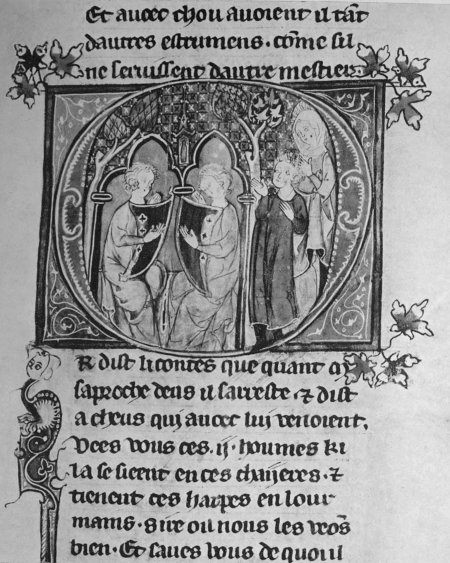 Et auoec chou auoient il tāt
dautres estrumens. cōme sil
ne seruissent dautre mestier.
R dist li contes que quant
saproche deus il sarreste. ⁊ dist
a cheus qui auoec lui venoient.
Vees vous ces .ij. houmes ki
la se sieent en ces chaijeres. ⁊
tienent ces harpes en lour
mains. sire oil nous les veōs
bien. Et saues vous de quoi il